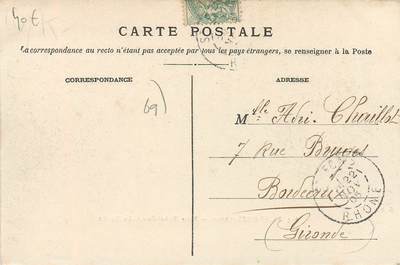 40€
CARTE POSTALE
La correspondance au recto n'étant pas acceptée par tous les pays étrangers, se renseigner à la Poste
CORRESPONDANCE
ADRESSE
69)
Mlle Adri. Chaillot
7 Rue
Bordeaux
(Gironde)
RHONE